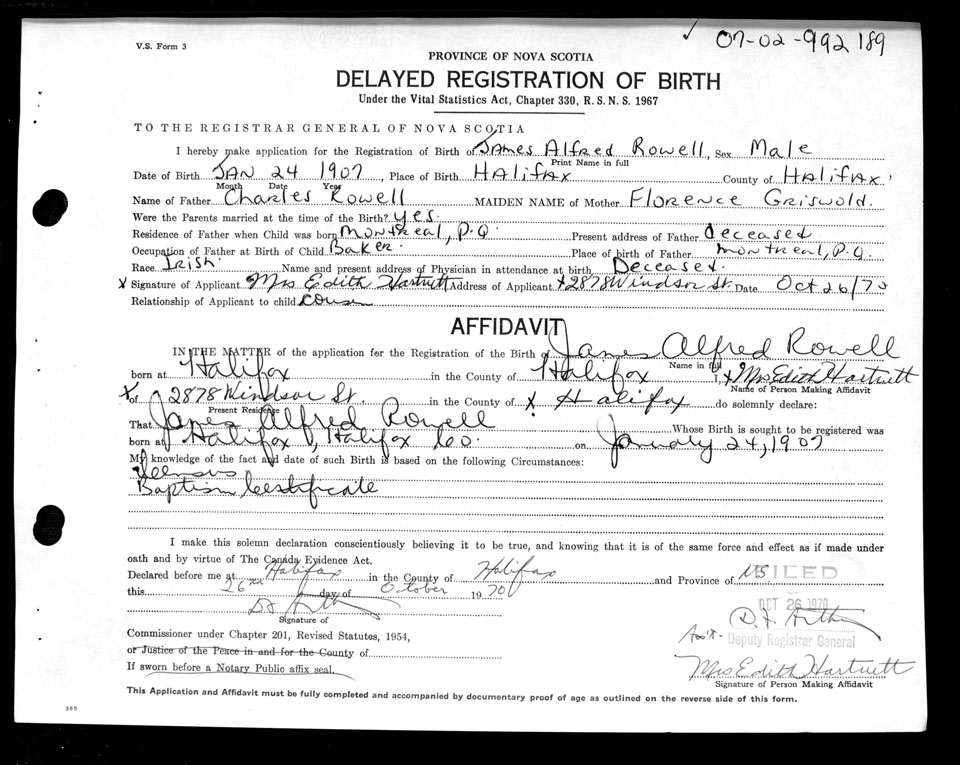 07-02-992189
V.S. Form 3
PROVINCE OF NOVA SCOTIA
DELAYED REGISTRATION OF BIRTH
Under the Vital Statistics Act, Chapter 330, R. S. N. S. 1967
TO THE REGISTRAR GENERAL OF NOVA SCOTIA
I hereby make application for the Registration of Birth of James Alfred Rowell, Sex Male
Print Name in full
Date of Birth JAN 24 1907, Place of Birth Halifax County of Halifax
Month Date Year
Name of Father Charles Rowell MAIDEN NAME of Mother Florence Griswold.
Were the Parents married at the time of the Birth? yes.
Residence of Father when Child was born Montreal, P.Q. Present address of Father deceased
Occupation of Father at Birth of Child Baker. Place of birth of Father Montreal, P.Q.
Race Irish. Name and present address of Physician in attendance at birth Deceased.
x Signature of Applicant Mrs Edith Hartnett Address of Applicant x 2878 Windsor St. Date Oct 26/70
Relationship of Applicant to child cousin
AFFIDAVIT
IN THE MATTER of the application for the Registration of the Birth of James Alfred Rowell
Name in full
born at Halifax in the County of Halifax I, x Mrs Edith Hartnett
Name of Person Making Affidavit
x of 2878 Windsor St. in the County of x Halifax do solemnly declare:
Present Residence
That James Alfred Rowell Whose Birth is sought to be registered was
born at Halifax, Halifax Co. on January 24, 1907
My knowledge of the fact and date of such Birth is based on the following Circumstances:
Baptism Certificate
I make this solemn declaration conscientiously believing it to be true, and knowing that it is of the same force and effect as if made under
oath and by virtue of The Canada Evidence Act.
Declared before me at Halifax in the County of Halifax and Province of NS
FILED
this 26th day of October 1970
OCT 26 1970
Signature of
Commissioner under Chapter 201, Revised Statutes, 1954,
Ass't. Deputy Registrar General
or Justice of the Peace in and for the County of
If sworn before a Notary Public affix seal.
Mrs Edith Hartnett
Signature of Person Making Affidavit
This Application and Affidavit must be fully completed and accompanied by documentary proof of age as outlined on the reverse side of this form.